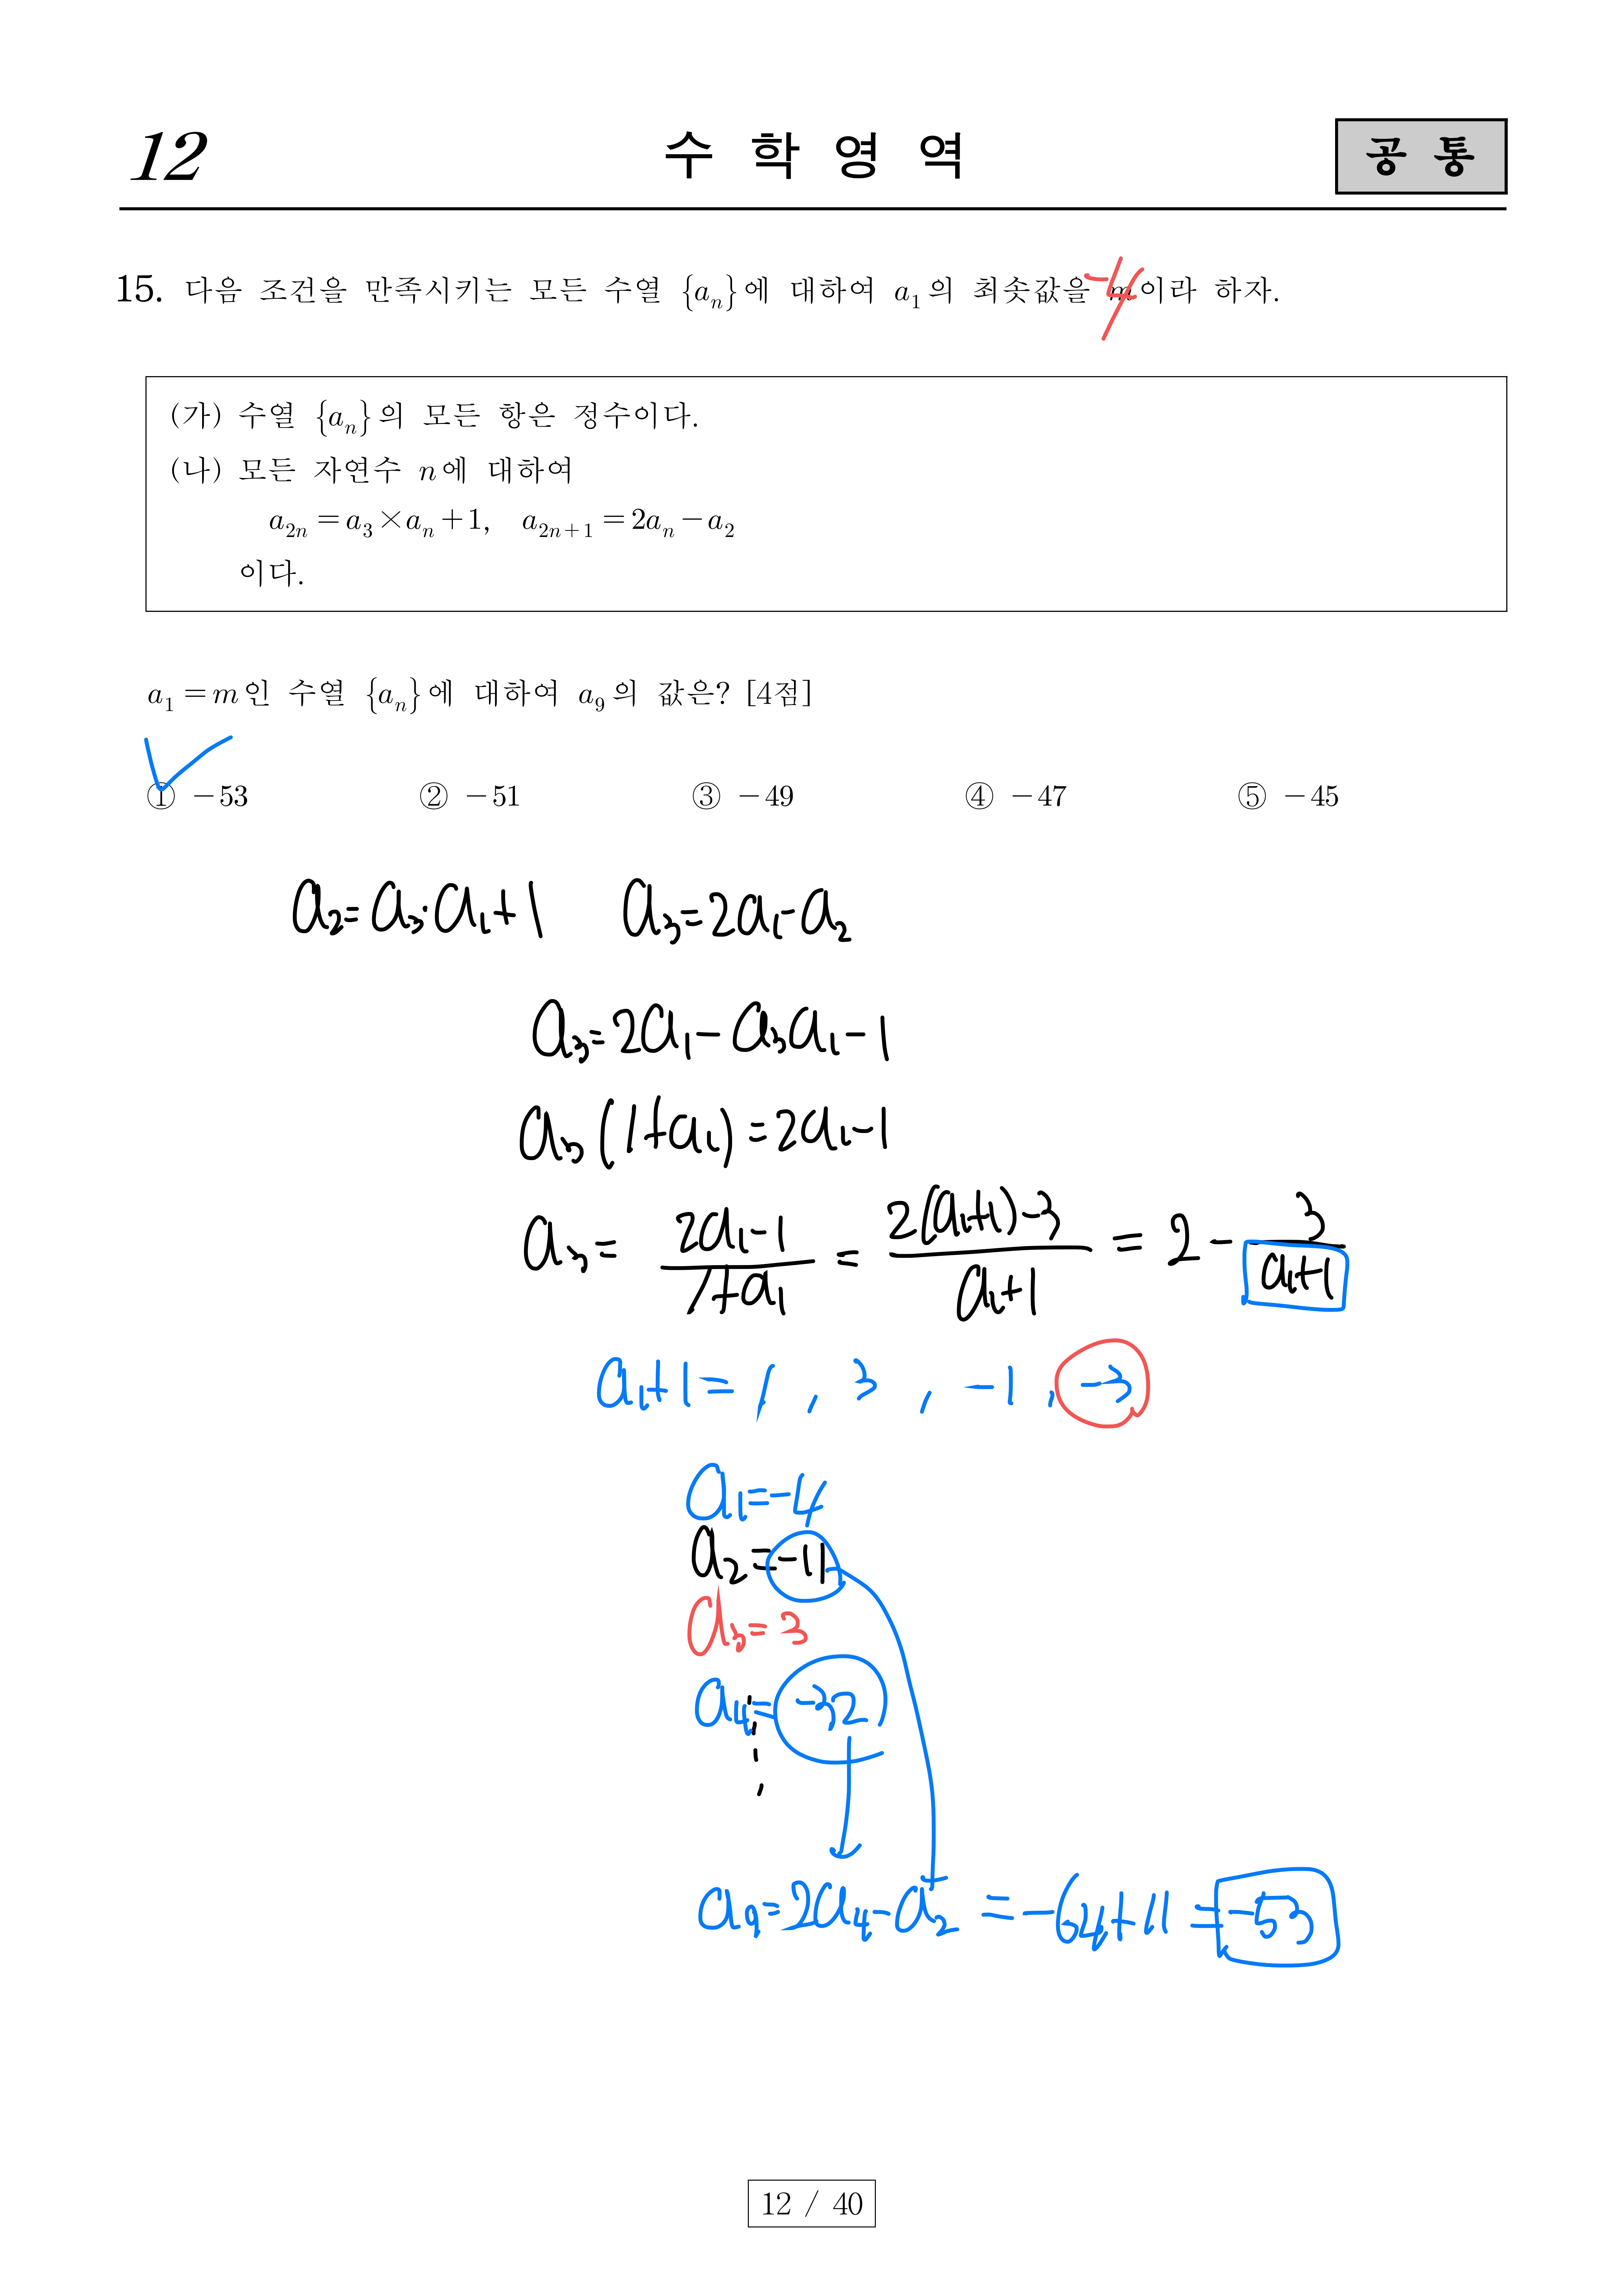 12 수 학 영 역 공 통
15. 다음 조건을 만족시키는 모든 수열 {aₙ}에 대하여 a₁의 최솟값을 m이라 하자.
-4
(가) 수열 {aₙ}의 모든 항은 정수이다.
(나) 모든 자연수 n에 대하여
a₂ₙ = a₃ × aₙ + 1, a₂ₙ₊₁ = 2aₙ − a₂
이다.
a₁ = m인 수열 {aₙ}에 대하여 a₉의 값은? [4점]
① −53 ② −51 ③ −49 ④ −47 ⑤ −45
a₂=a₃·a₁+1 a₃=2a₁-a₂
a₃=2a₁-a₃a₁-1
a₃(1+a₁)=2a₁-1
a₃= (2a₁-1)/(1+a₁) = (2(a₁+1)-3)/(a₁+1) = 2 - 3/(a₁+1)
a₁+1= 1, 3, -1, -3
a₁=-4
a₂=-11
a₃=3
a₄=-32
a₉=2a₄-a₂ = -64+11 = -53
12 / 40